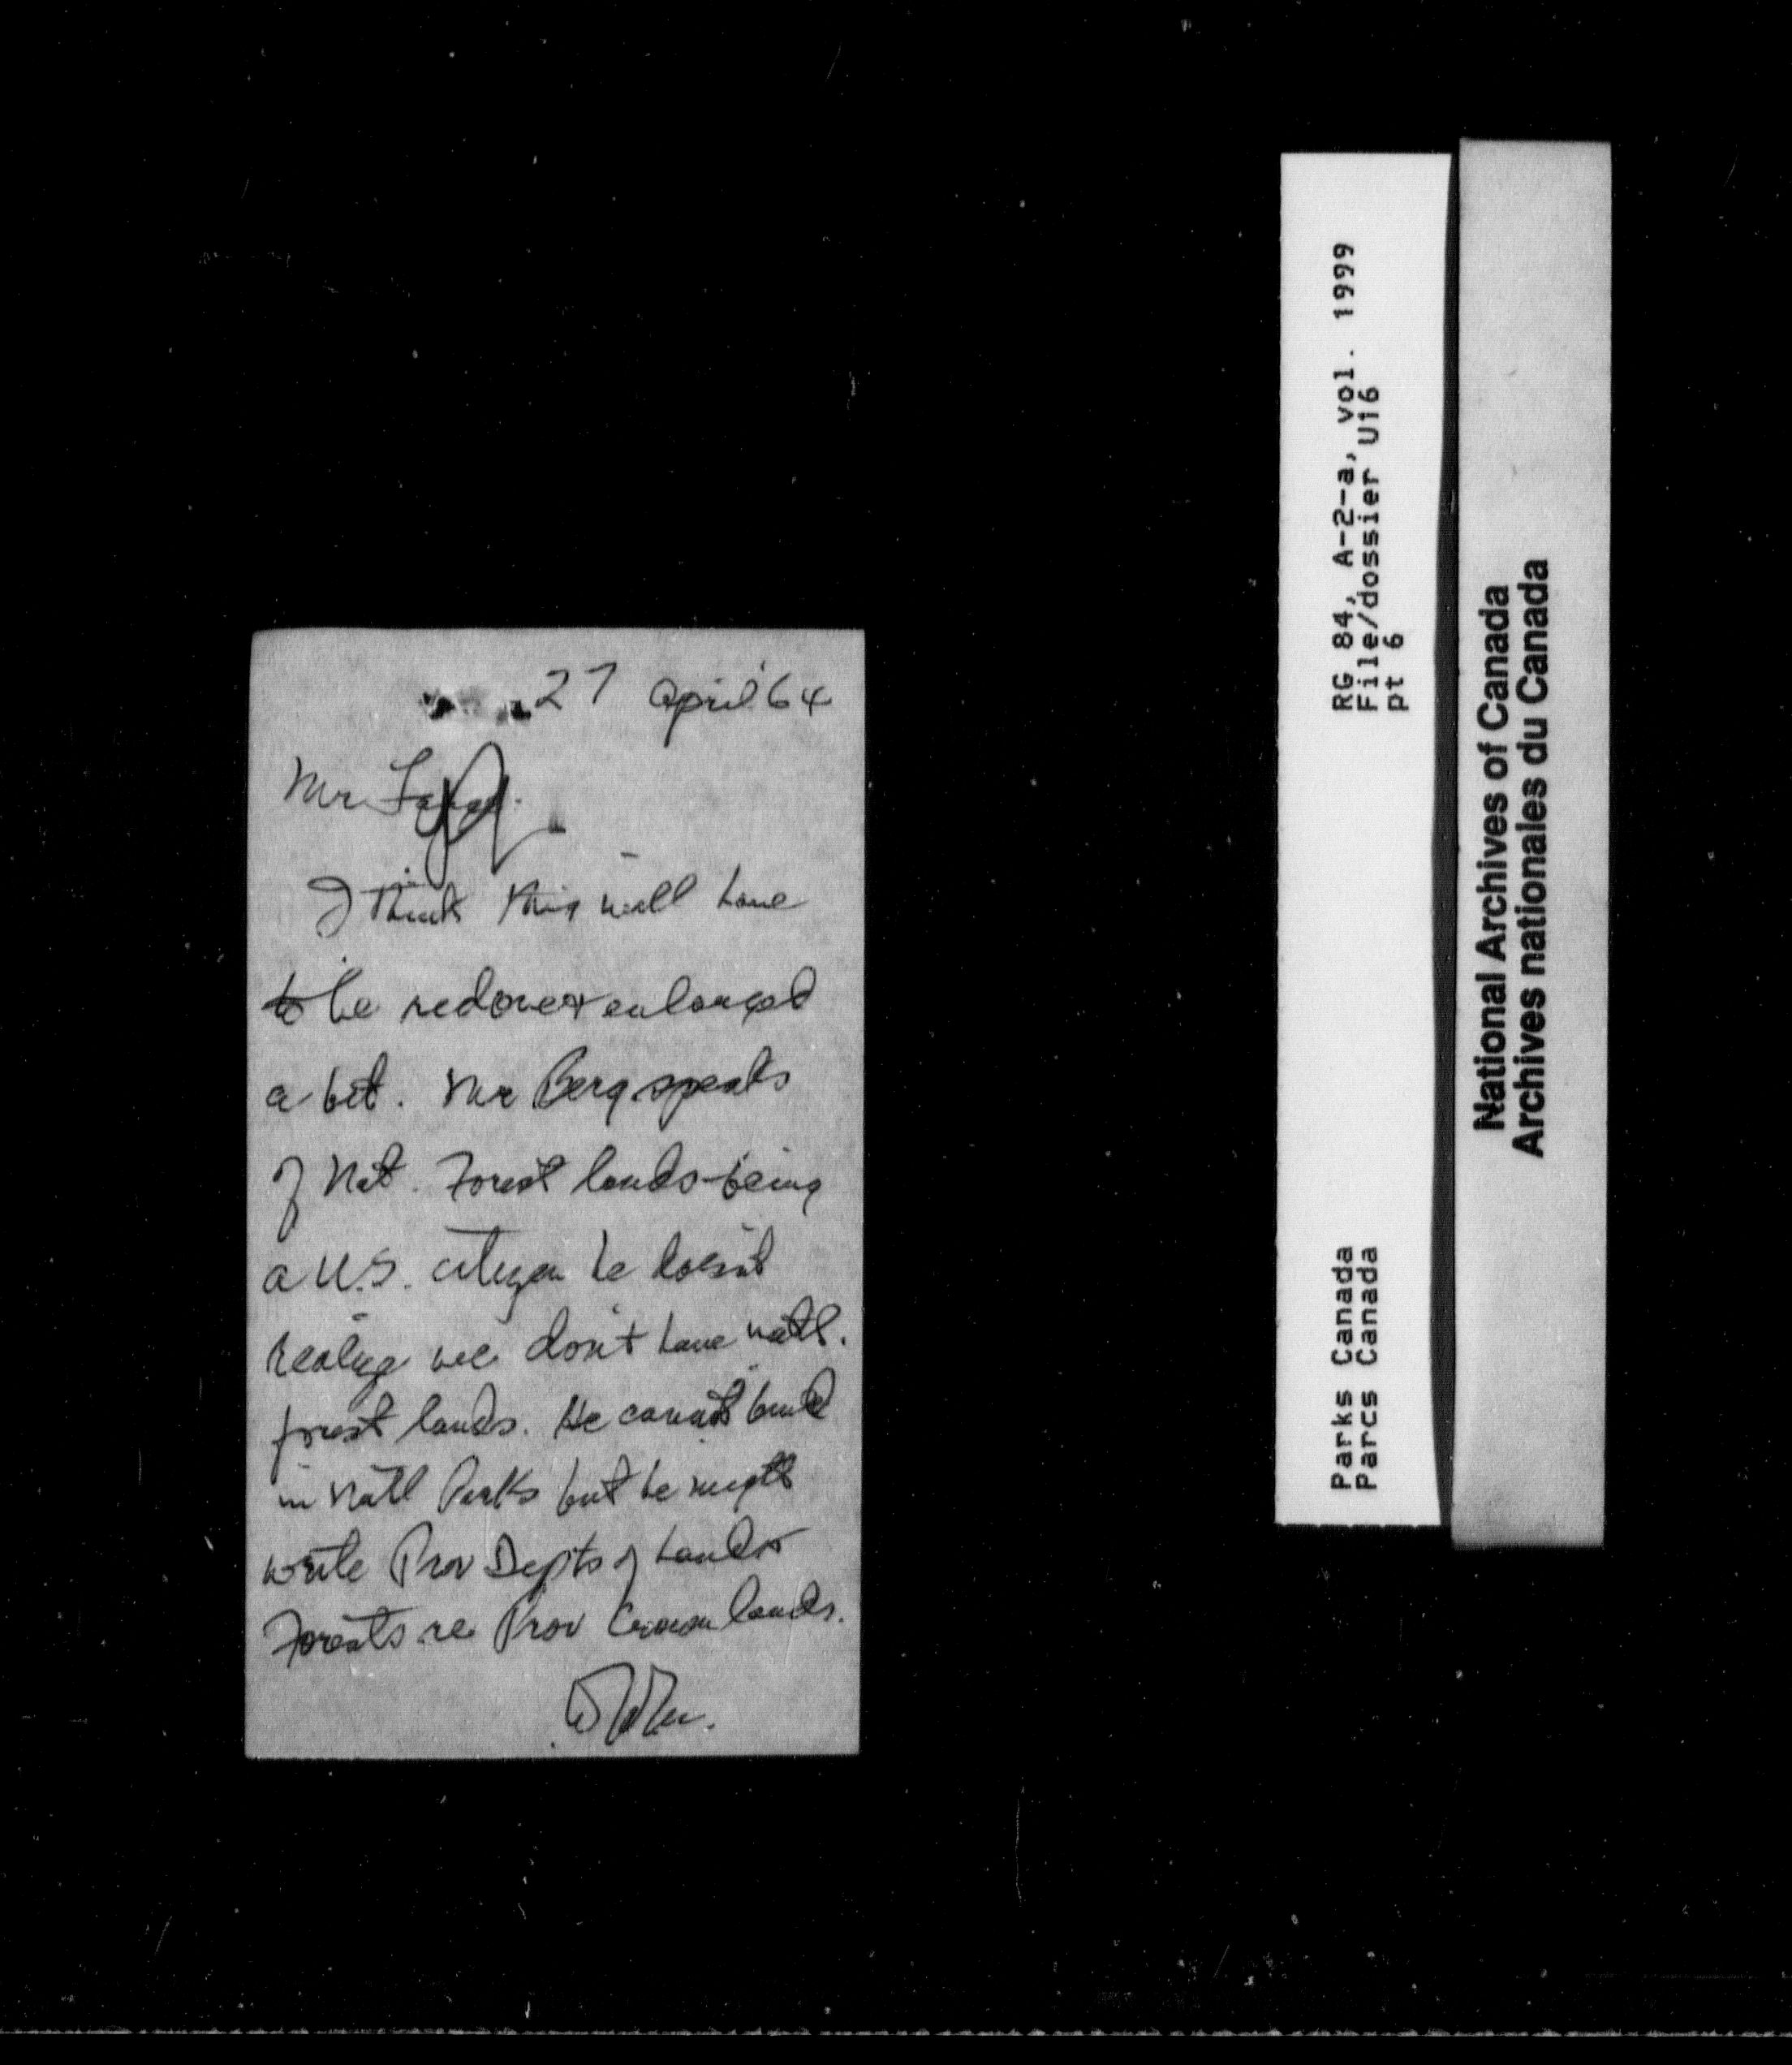 27 April '64
Mr.
I think this will have
to be redone & enlarged
a bit. Mr Berg speaks
of Nat. Forest lands - being
a U.S. citizen he doesn't
realize we don't have natl.
forest lands. He cannot build
in Natl Parks but he might
write Prov Depts of Lands &
Forests re Prov Crown lands.
RG 84, A-2-a, vol. 1999
File/dossier U16
pt 6
Parks Canada
Parcs Canada
National Archives of Canada
Archives nationales du Canada